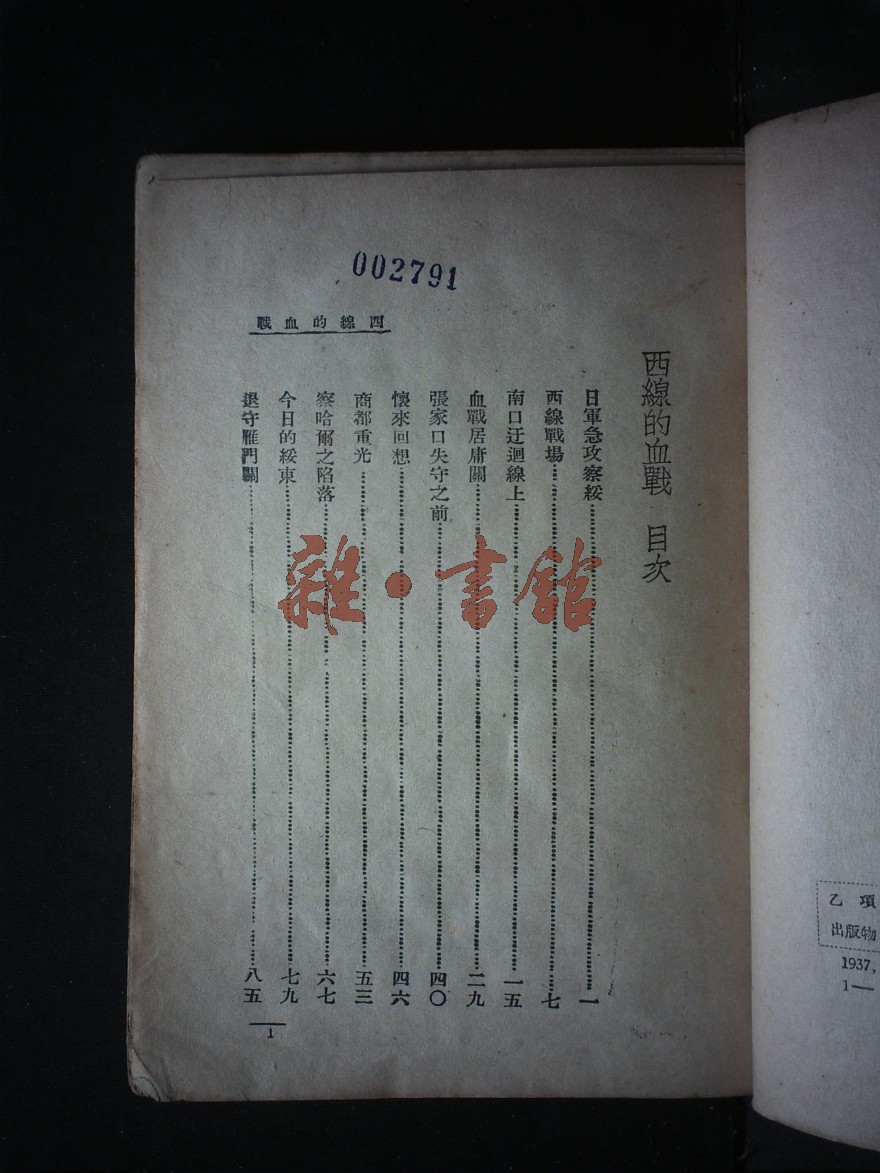 002791
戰血的線西
西線的血戰 目次
日軍急攻察綏……一
西線戰場……七
南口迂迴線上……一五
血戰居庸關……二九
張家口失守之前……四〇
懷來回想……四六
商都重光……五三
察哈爾之陷落……六七
今日的綏東……七九
退守雁門關……八五
1
雜·書館
乙項
出版物
1937,
1—